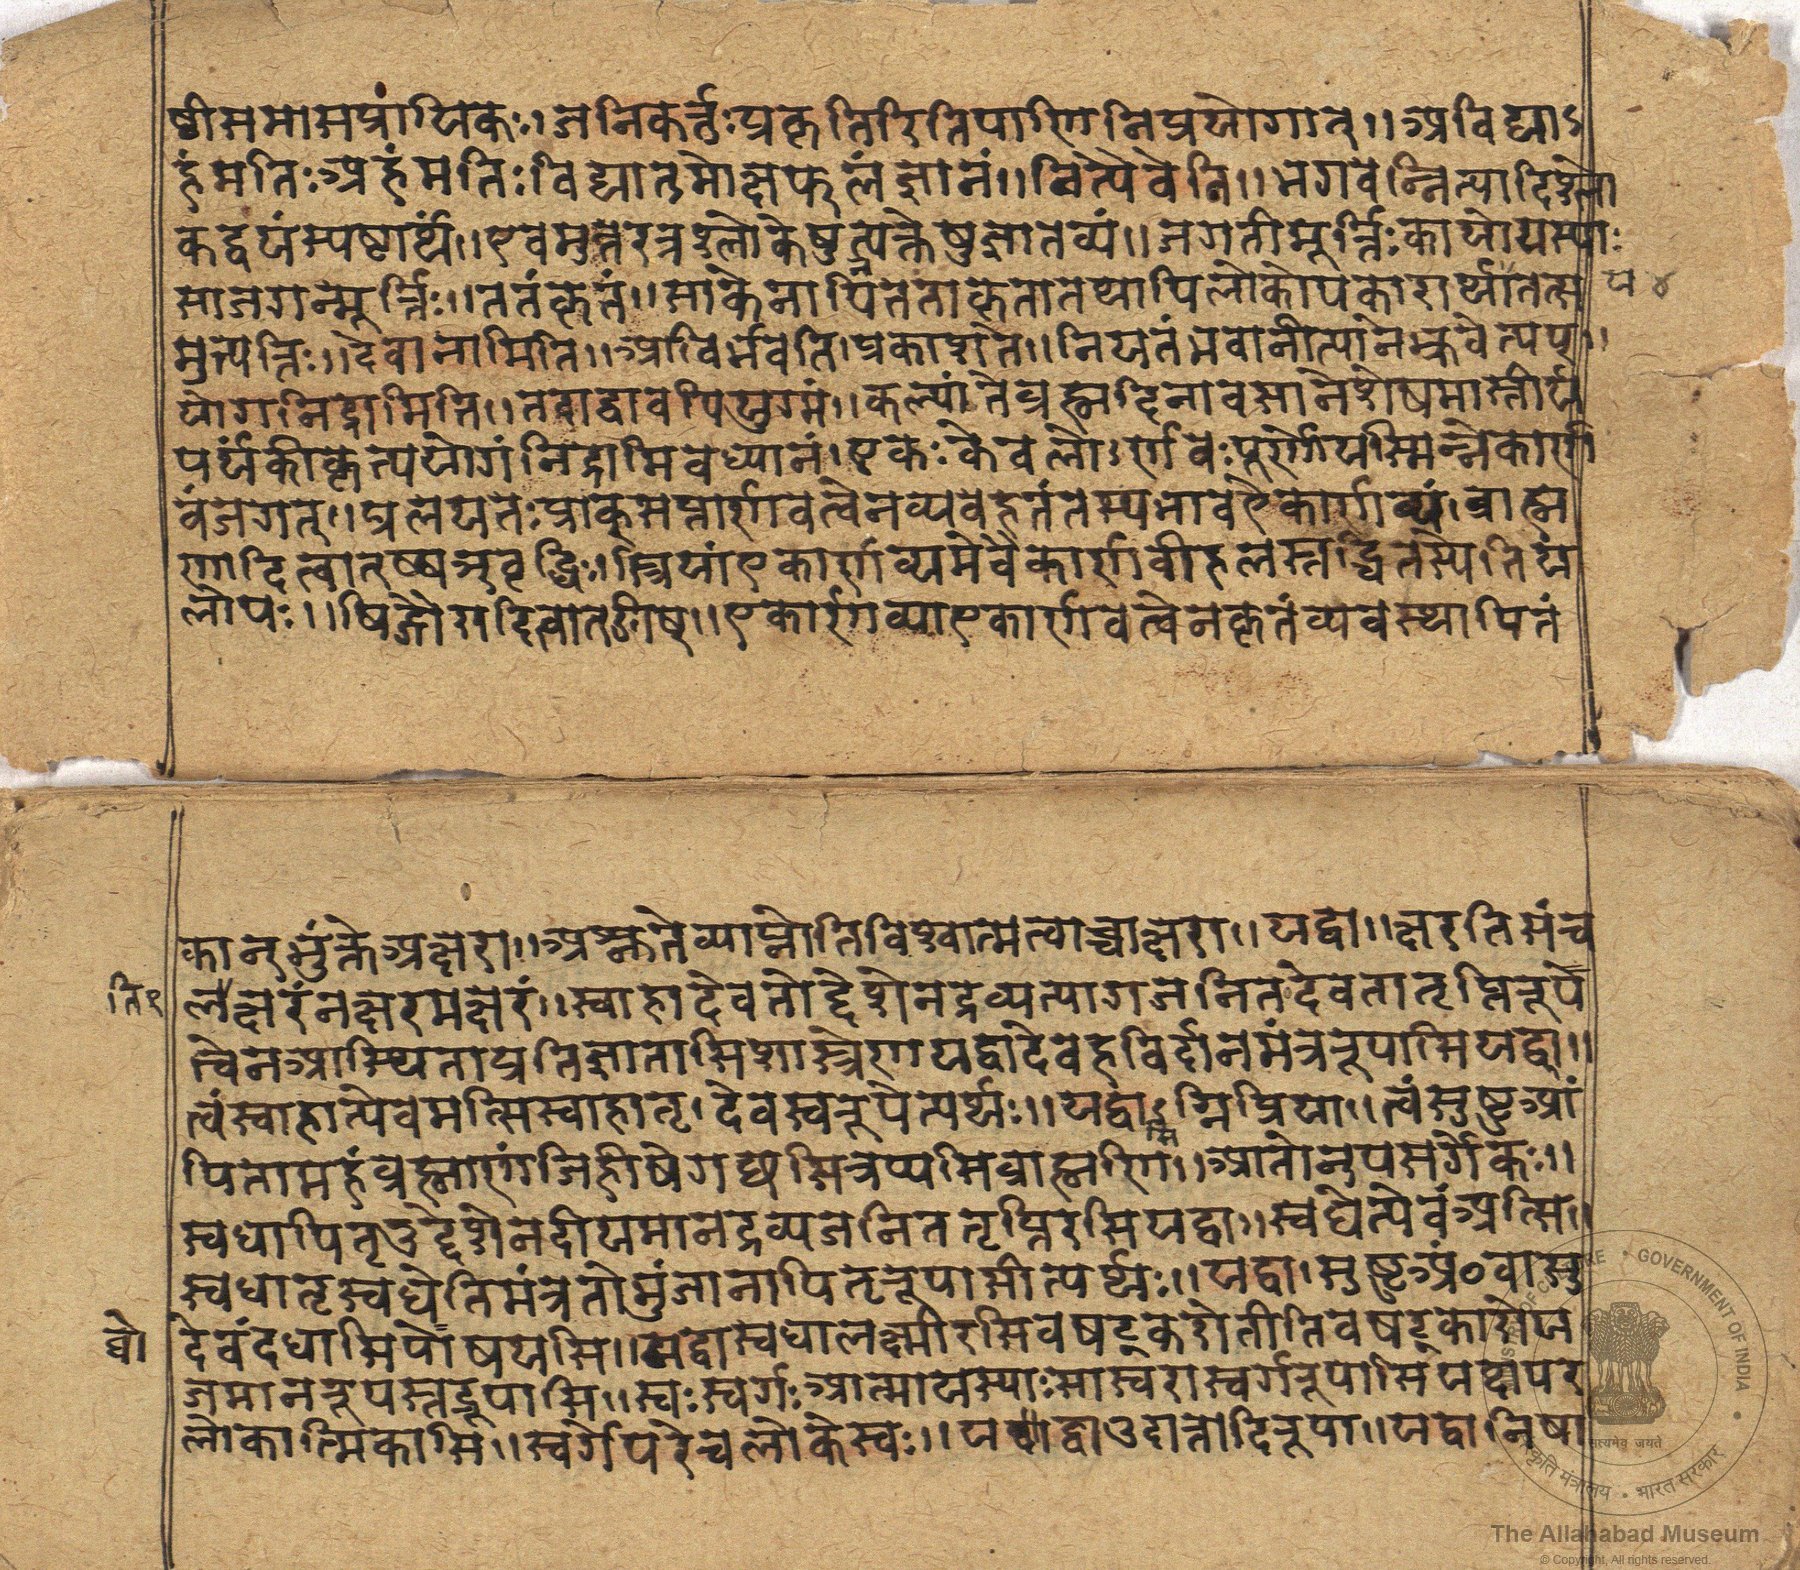 ष्ठीसमासप्रायिकः। जनिकर्त्तुःप्रकृतिरितिपाणिनिप्रयोगात्॥ अविद्याऽ
हंमतिःअहंमतिःविद्यातुमोक्षफलंज्ञानं॥ नित्यैवेति॥ भगवन्नित्यादिश्लो
कद्वयंस्पष्टार्थं॥ एवमुत्तरत्रश्लोकेषुत्यक्तेषुज्ञातव्यं॥ जगतीमूर्त्तिःकायोयस्याः
साजगन्मूर्त्तिः॥ ततंकृतं॥ साकेनापिनतताकृतातथापिलोकोपकारार्थातत्स
मुत्पत्तिः॥ देवानामिति॥ आविर्भवतिप्रकाशते॥ नियतंभवानीत्यानम्कवेत्यपु॥
योगनिद्रामिति॥ तदाद्वावपियुग्मं॥ कल्पांतेब्रह्मदिनावसानेशेषमास्तीर्य
पर्यंकीकृत्ययोगंनिद्रामिवध्यानं। एकःकेवलोऽर्णवःपूर्णोयस्मिन्नेकार्ण
वंजगत्॥ प्रलयतःप्राक्सप्तार्णवत्वेनव्यवहृतंतस्यभावऐकार्णव्यं। ब्राह्म
णादित्वात्ष्यञ्वृद्धिः। स्त्रियांएकार्णव्यमेवैकार्णवीहलस्तद्धितस्येतिय
लोपः॥ षिद्गौरादित्वात्ङीष्॥ एकार्णव्याएकार्णवत्वेनकृतंव्यवस्थापितं
य ४
कान्भुंक्तेअक्षरा॥ अश्नुतेव्याप्नोतिविश्वात्मत्वाच्चाक्षरा॥ यद्वा॥ क्षरतिसंच
लक्षरंनक्षरमक्षरं॥ स्वाहादेवतोद्देशेनद्रव्यत्यागजनितदेवतातृप्तिरूपे
ति१
त्वेनआस्थिताप्रतिज्ञातासिशास्त्रेणयद्वादेवहविर्दानमंत्ररूपासियद्वा॥
त्वंस्वाहात्येवमत्सिस्वाहातृ। देवस्वरूपेत्यर्थः॥ यद्वाऽग्निप्रिया॥ त्वंसुष्टुआं
पितामहंब्रह्माणंजिहीषेगच्छसिप्राप्यसिब्रह्माणि॥ आतोनुपसर्गेकः॥
स्वधापितृउद्देशेनदीयमानद्रव्यजनिततृप्तिरसियद्वा॥ स्वधेत्येवंअत्सि॥
स्वधातृस्वधेतिमंत्रतोभुंजानापितृरूपासीत्यर्थः॥ यद्वा। सुष्टुअं०वासु
देवंदधासिपोषयसि॥ यद्वास्वधालक्ष्मीरसिवषट्करोतीतिवषट्कारोय
वो
जमानरूपस्तद्रूपासि॥ स्वःस्वर्गःआत्मायस्याःसास्वरास्वर्गरूपासियद्वापर
लोकात्मिकासि॥ स्वर्गेपरेचलोकेस्वः॥ यद्वाउदात्तादिरूपा॥ यद्वानिषा
MINISTRY OF CULTURE • GOVERNMENT OF INDIA •
सत्यमेव जयते
संस्कृति मंत्रालय • भारत सरकार
The Allahabad Museum
© Copyright, All rights reserved.